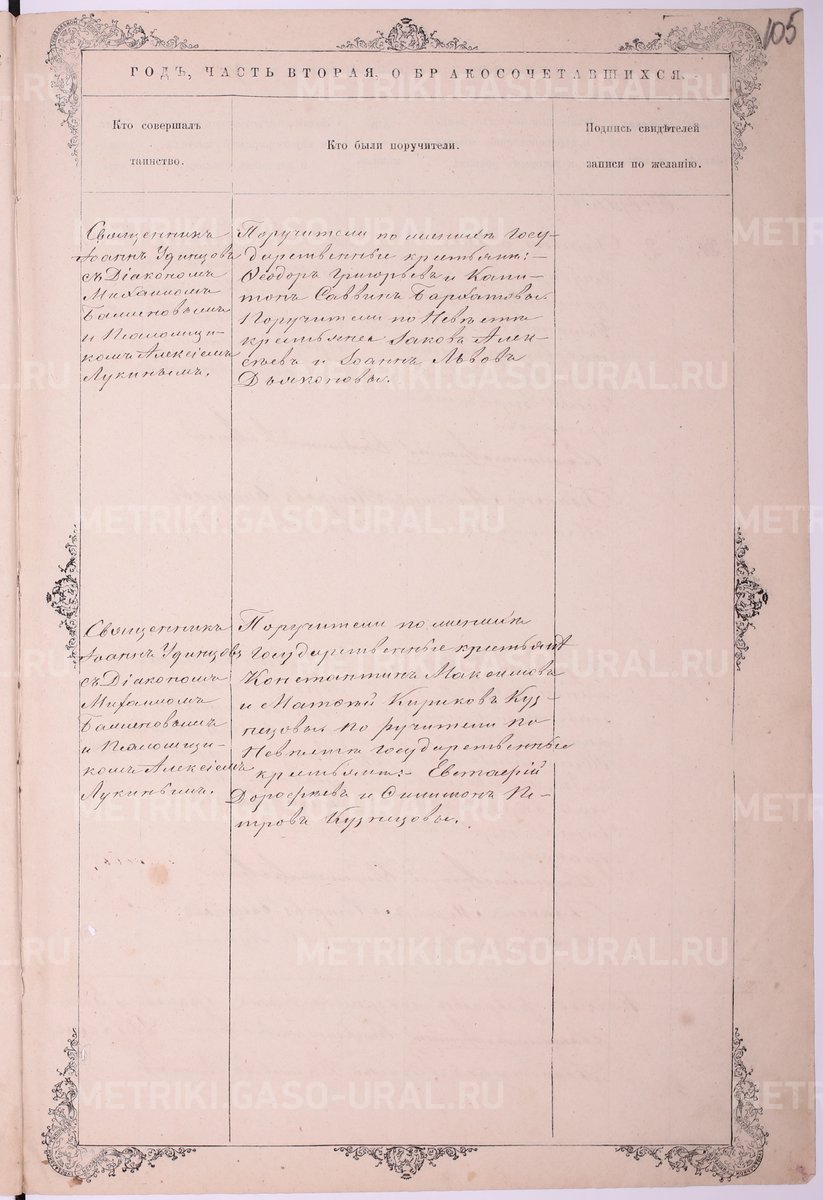 105
ГОДЪ, ЧАСТЬ ВТОРАЯ, О БРАКОСОЧЕТАВШИХСЯ.
Кто совершалъ
таинство.
Кто были поручители.
Подпись свидѣтелей
записи по желанію.
Священникъ
Іоаннъ Удинцовъ
съ Діакономъ
Михаиломъ
и Псаломщи-
комъ Алексіемъ
Лукинымъ.
Поручители по женихѣ Госу-
дарственные крестьяне:-
Ѳеодоръ Григорьевъ и Капи-
тонъ Саввинъ Бархатовы.
Поручители по Невѣстѣ
крестьяне Іаковъ Алек-
сѣевъ и Іоаннъ Львовъ
Дьяконовы.
Священникъ
Іоаннъ Удинцовъ
съ Діакономъ
Михаиломъ
и Псаломщи-
комъ Алексіемъ
Лукинымъ.
Поручители по женихѣ
государственные крестьяне
Константинъ Максимовъ
и Матѳій Кириковъ Куз-
нецовы. Поручители по
Невѣстѣ государственные
крестьяне:- Евстафій
Дорофеевъ и Филимонъ Пе-
тровъ Кузнецовы.
METRIKI.GASO-URAL.RU